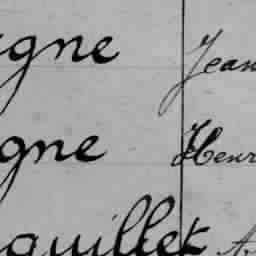 igne Jean
gne Henr
quillet A.